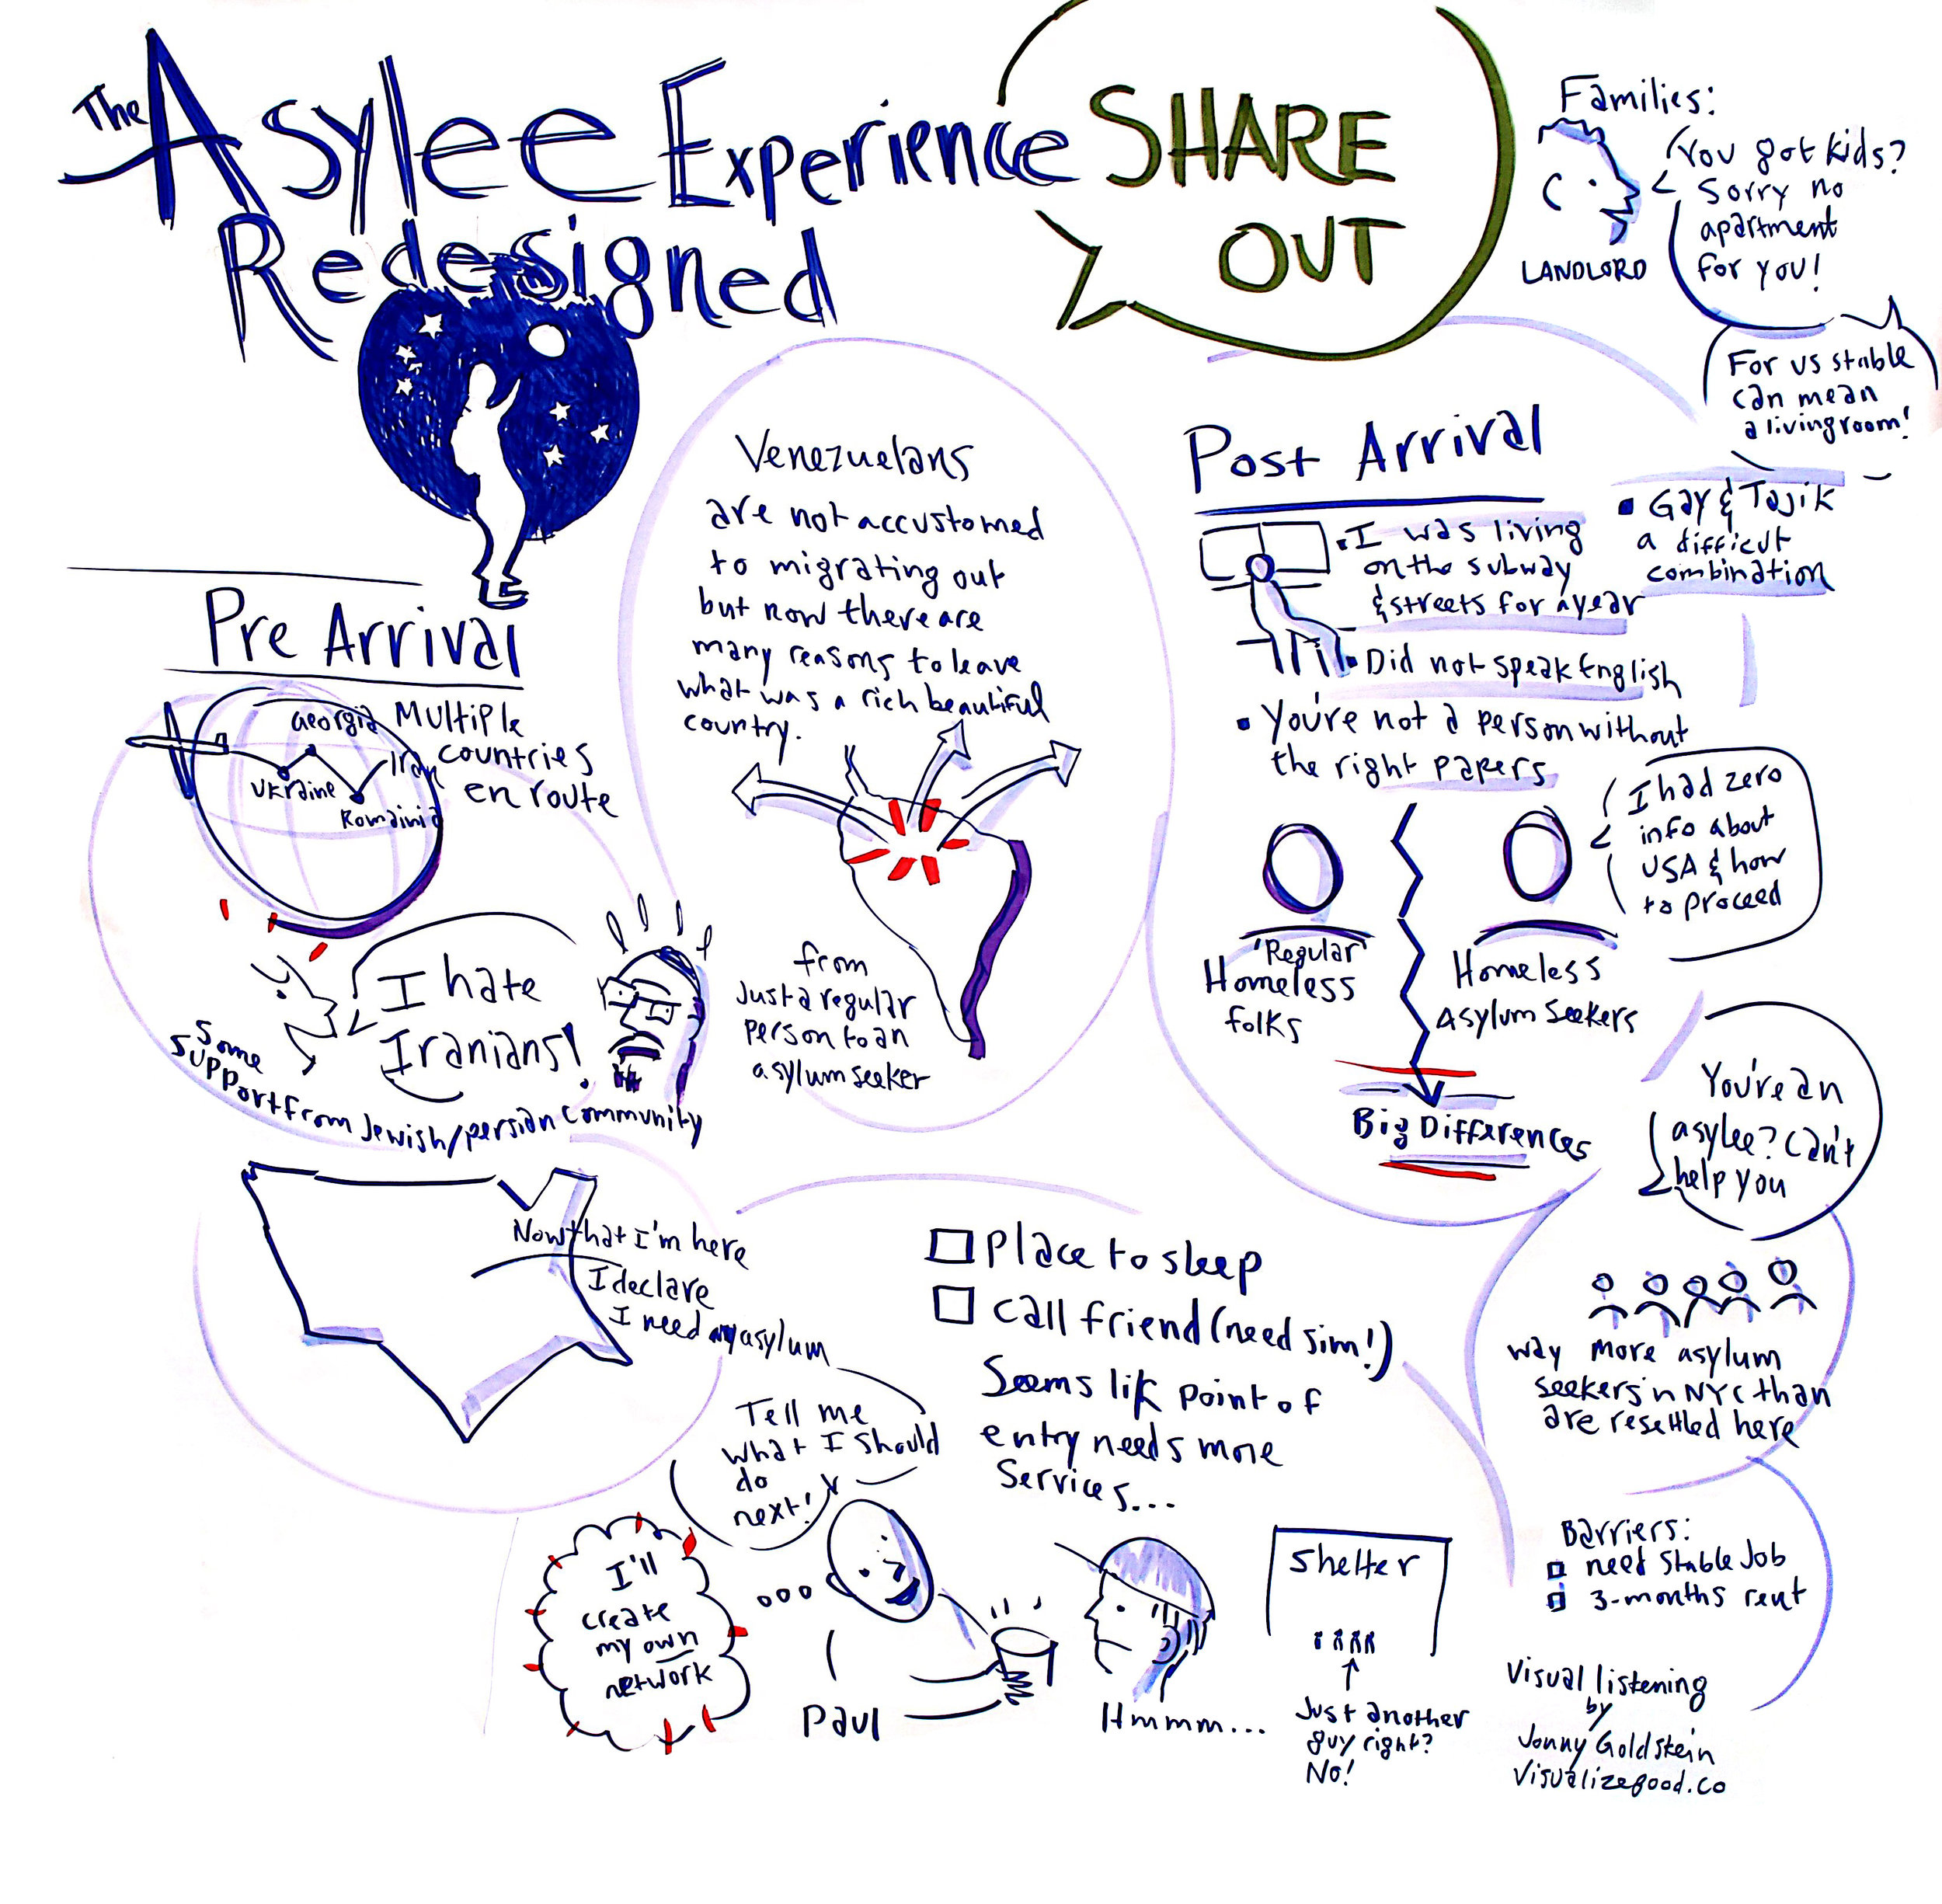 The Asylee Experience
Redesigned
SHARE
OUT
Families:
You got kids?
Sorry no
apartment
for you!
LANDLORD
For us stable
can mean
a livingroom!
Pre Arrival
Georgia
Ukraine
Romainia
Iran
Multiple
countries
en route
I hate
Iranians!
Some
support from Jewish/persian community
Venezuelans
are not accustomed
to migrating out
but now there are
many reasons to leave
what was a rich beautiful
country.
from
Just a regular
person to an
asylum seeker
Post Arrival
I was living
on the subway
& streets for a year
Did not speak English
You're not a person without
the right papers
Gay & Tajik
a difficult
combination
"Regular"
Homeless
folks
Homeless
Asylum Seekers
I had zero
info about
USA & how
to proceed
Big Differences
You're an
asylee? Can't
help you
way more asylum
seekers in NYC than
are resettled here
Now that I'm here
I declare
I need asylum
Place to sleep
call friend (need sim!)
Seems lik point of
entry needs more
Services...
Tell me
what I should
do
next!
I'll
create
my own
network
Paul
Hmmm...
Shelter
Just another
guy right?
No!
Barriers:
need stable Job
3-months rent
Visual listening
by
Jonny Goldstein
Visualizegood.co